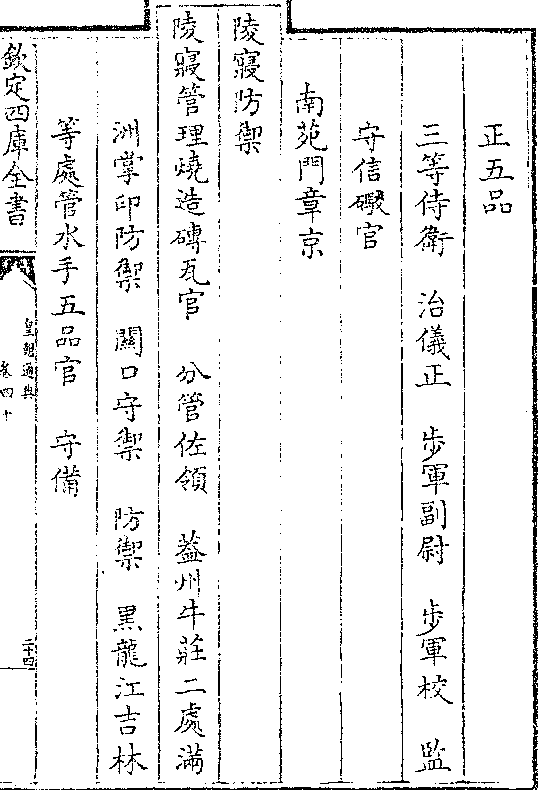 正五品
三等侍衛　治儀正　步軍副尉　步軍校　監
守信礮官
南苑門章京
陵寢防禦
陵寢管理燒造磚瓦官　分管佐領　葢州牛莊二處滿
洲掌印防禦　關口守禦　防禦　黑龍江吉林
等處管水手五品官　守備
欽定四庫全書
皇朝通典
卷四十
二十四